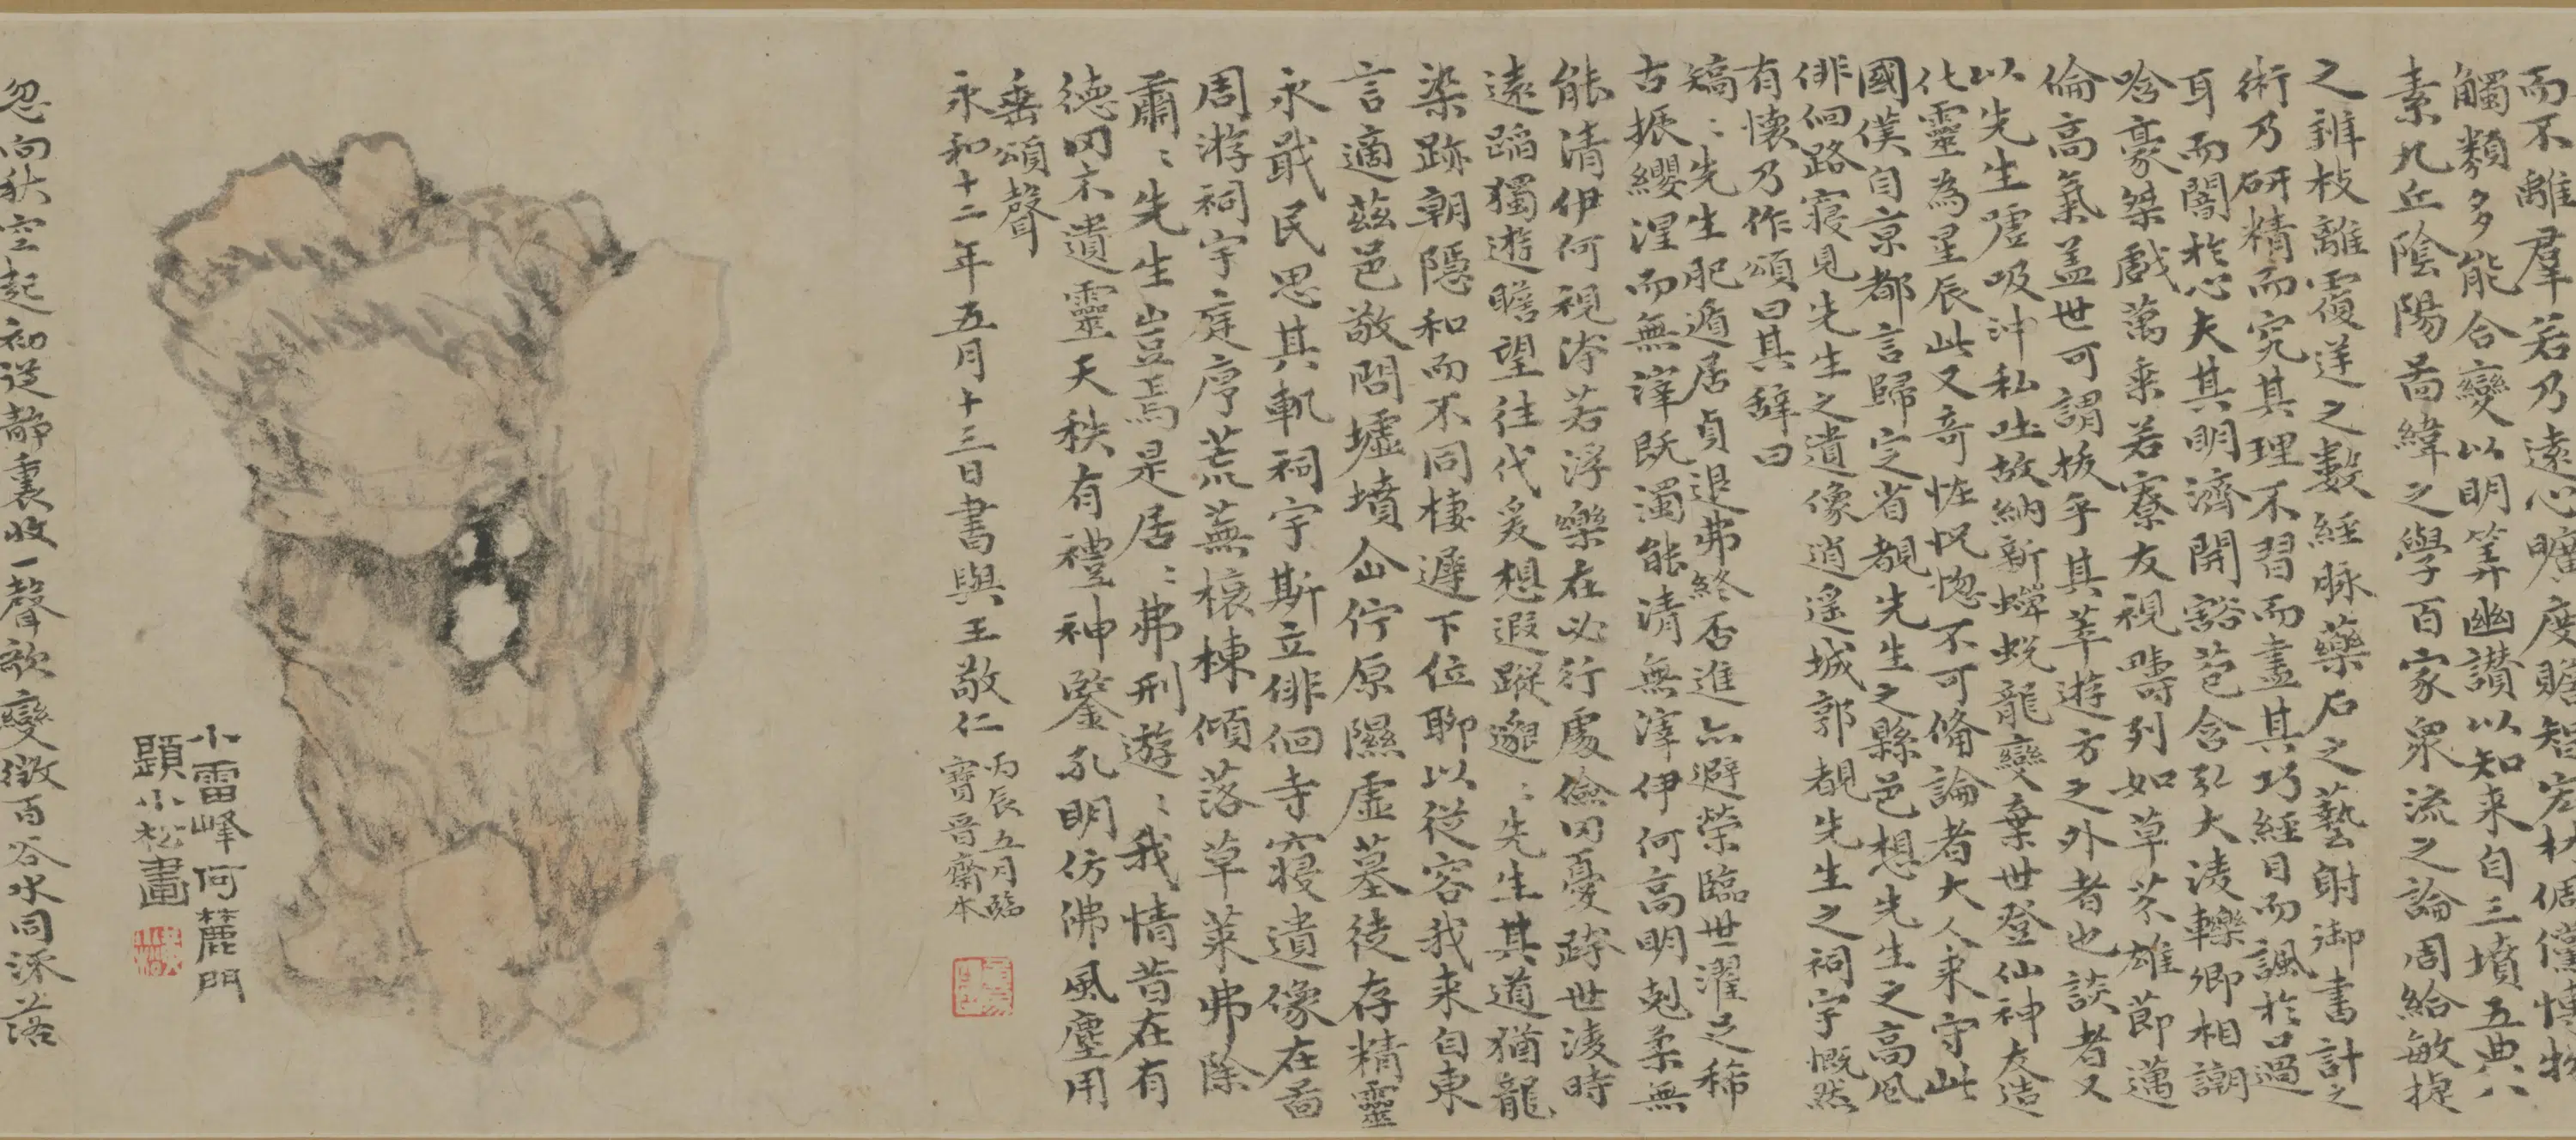 而不離羣若乃遠心曠度贍智宏材倜儻博物
觸類多能合變以明筭幽讃以知来自三墳五典八
素九丘陰陽啚緯之學百家衆流之論周給敏捷
之辨枝離覆逆之數經脉藥石之藝射御書計之
術乃研精而究其理不習而盡其巧經目而諷於口過
耳而闇於心夫其明濟開豁苞含弘大淩轢卿相謿
唅豪桀戲萬乗若寮友視疇列如草芥雄節邁
倫高氣盖世可謂拔乎其萃遊方之外者也談者又
以先生嘘吸沖和吐故納新蟬蛻龍變棄世登仙神友造
化靈為星辰此又奇恠怳惚不可備論者大人来守此
國僕自京都言歸定省覩先生之縣邑想先生之高風
徘徊路寢見先生之遺像逍遥城郭覩先生之祠宇慨然
有懐乃作頌曰其辭曰
矯〻先生肥遁居貞退弗終否進亦避榮臨世濯足稀
古振纓涅而無滓既濁能清無滓伊何高明剋柔無
能清伊何視洿若浮樂在必行處儉罔憂跨世淩時
遠蹈獨遊瞻望往代爰想遐蹤邈〻先生其道猶龍
染跡朝隱和而不同棲遲下位聊以從容我来自東
言適茲邑敬問墟墳企佇原隰虚墓徒存精靈
永戢民思其軌祠宇斯立徘徊寺寢遺像在啚
周游祠宇庭序荒蕪榱棟傾落草莱弗除
肅〻先生豈焉是居〻弗刑遊〻我情昔在有
德罔不遺靈天秩有禮神鑒孔明仿佛風塵用
垂頌聲
永和十二年五月十三日書與王敬仁
丙辰五月臨
寶晋齋本
小雷峰何麓門
題小松畫
忽向秋空起初從静裏收一聲歌變徵百谷水同流落